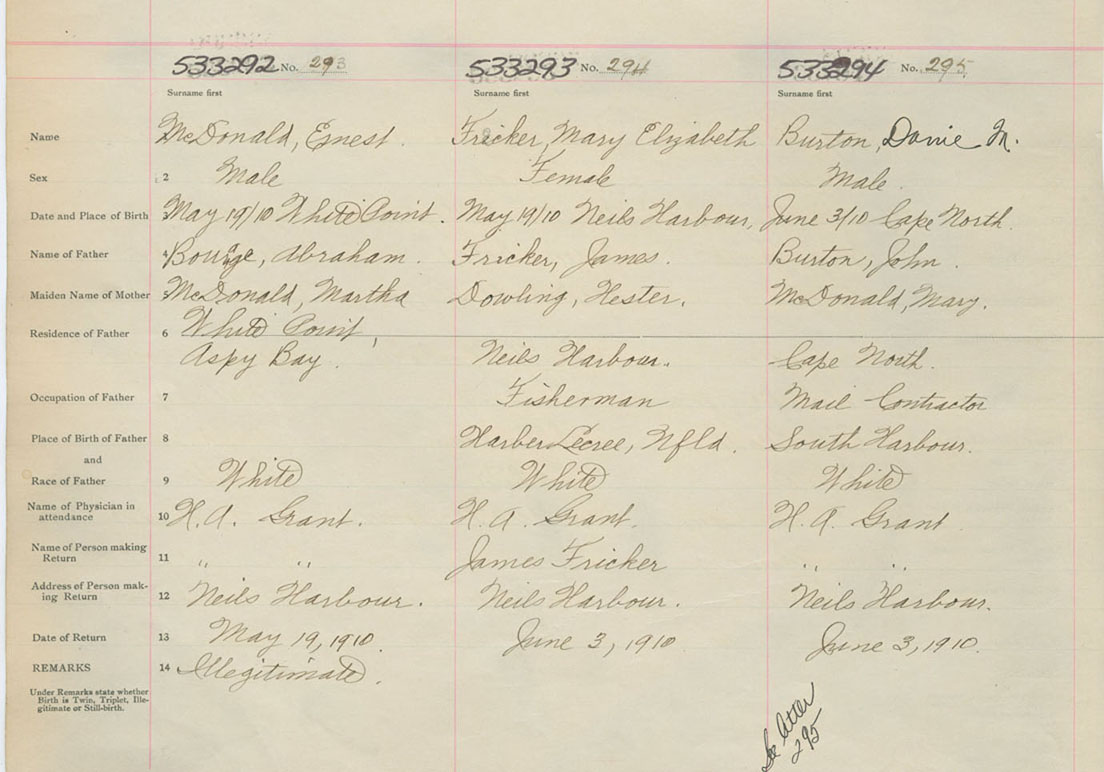 533292 No. 293 533293 No. 294 533294 No. 295
Surname first Surname first Surname first
Name McDonald, Ernest. Fricker, Mary Elizabeth Burton, M.
Sex 2 Male Female Male.
Date and Place of Birth 3 May 19/10 White Point. May 19/10 Neils Harbour, June 3/10 Cape North.
Name of Father 4 Abraham. Fricker, James. Burton, John.
Maiden Name of Mother 5 McDonald, Martha Dowling, Hester. McDonald, Mary.
Residence of Father 6 White Point,
Aspy Bay. Neils Harbour. Cape North.
Occupation of Father 7 Fisherman Mail Contractor
Place of Birth of Father 8 Harber Nfld. South Harbour.
and
Race of Father 9 White White White
Name of Physician in
attendance 10 H. A. Grant. H. A. Grant. H. A. Grant
Name of Person making
Return 11 " " James Fricker " "
Address of Person mak-
ing Return 12 Neils Harbour. Neils Harbour. Neils Harbour.
Date of Return 13 May 19, 1910. June 3, 1910 June 3, 1910.
REMARKS 14 Illegitimate.
Under Remarks state whether
Birth is Twin, Triplet, Ille-
gitimate or Still-birth.
See
295